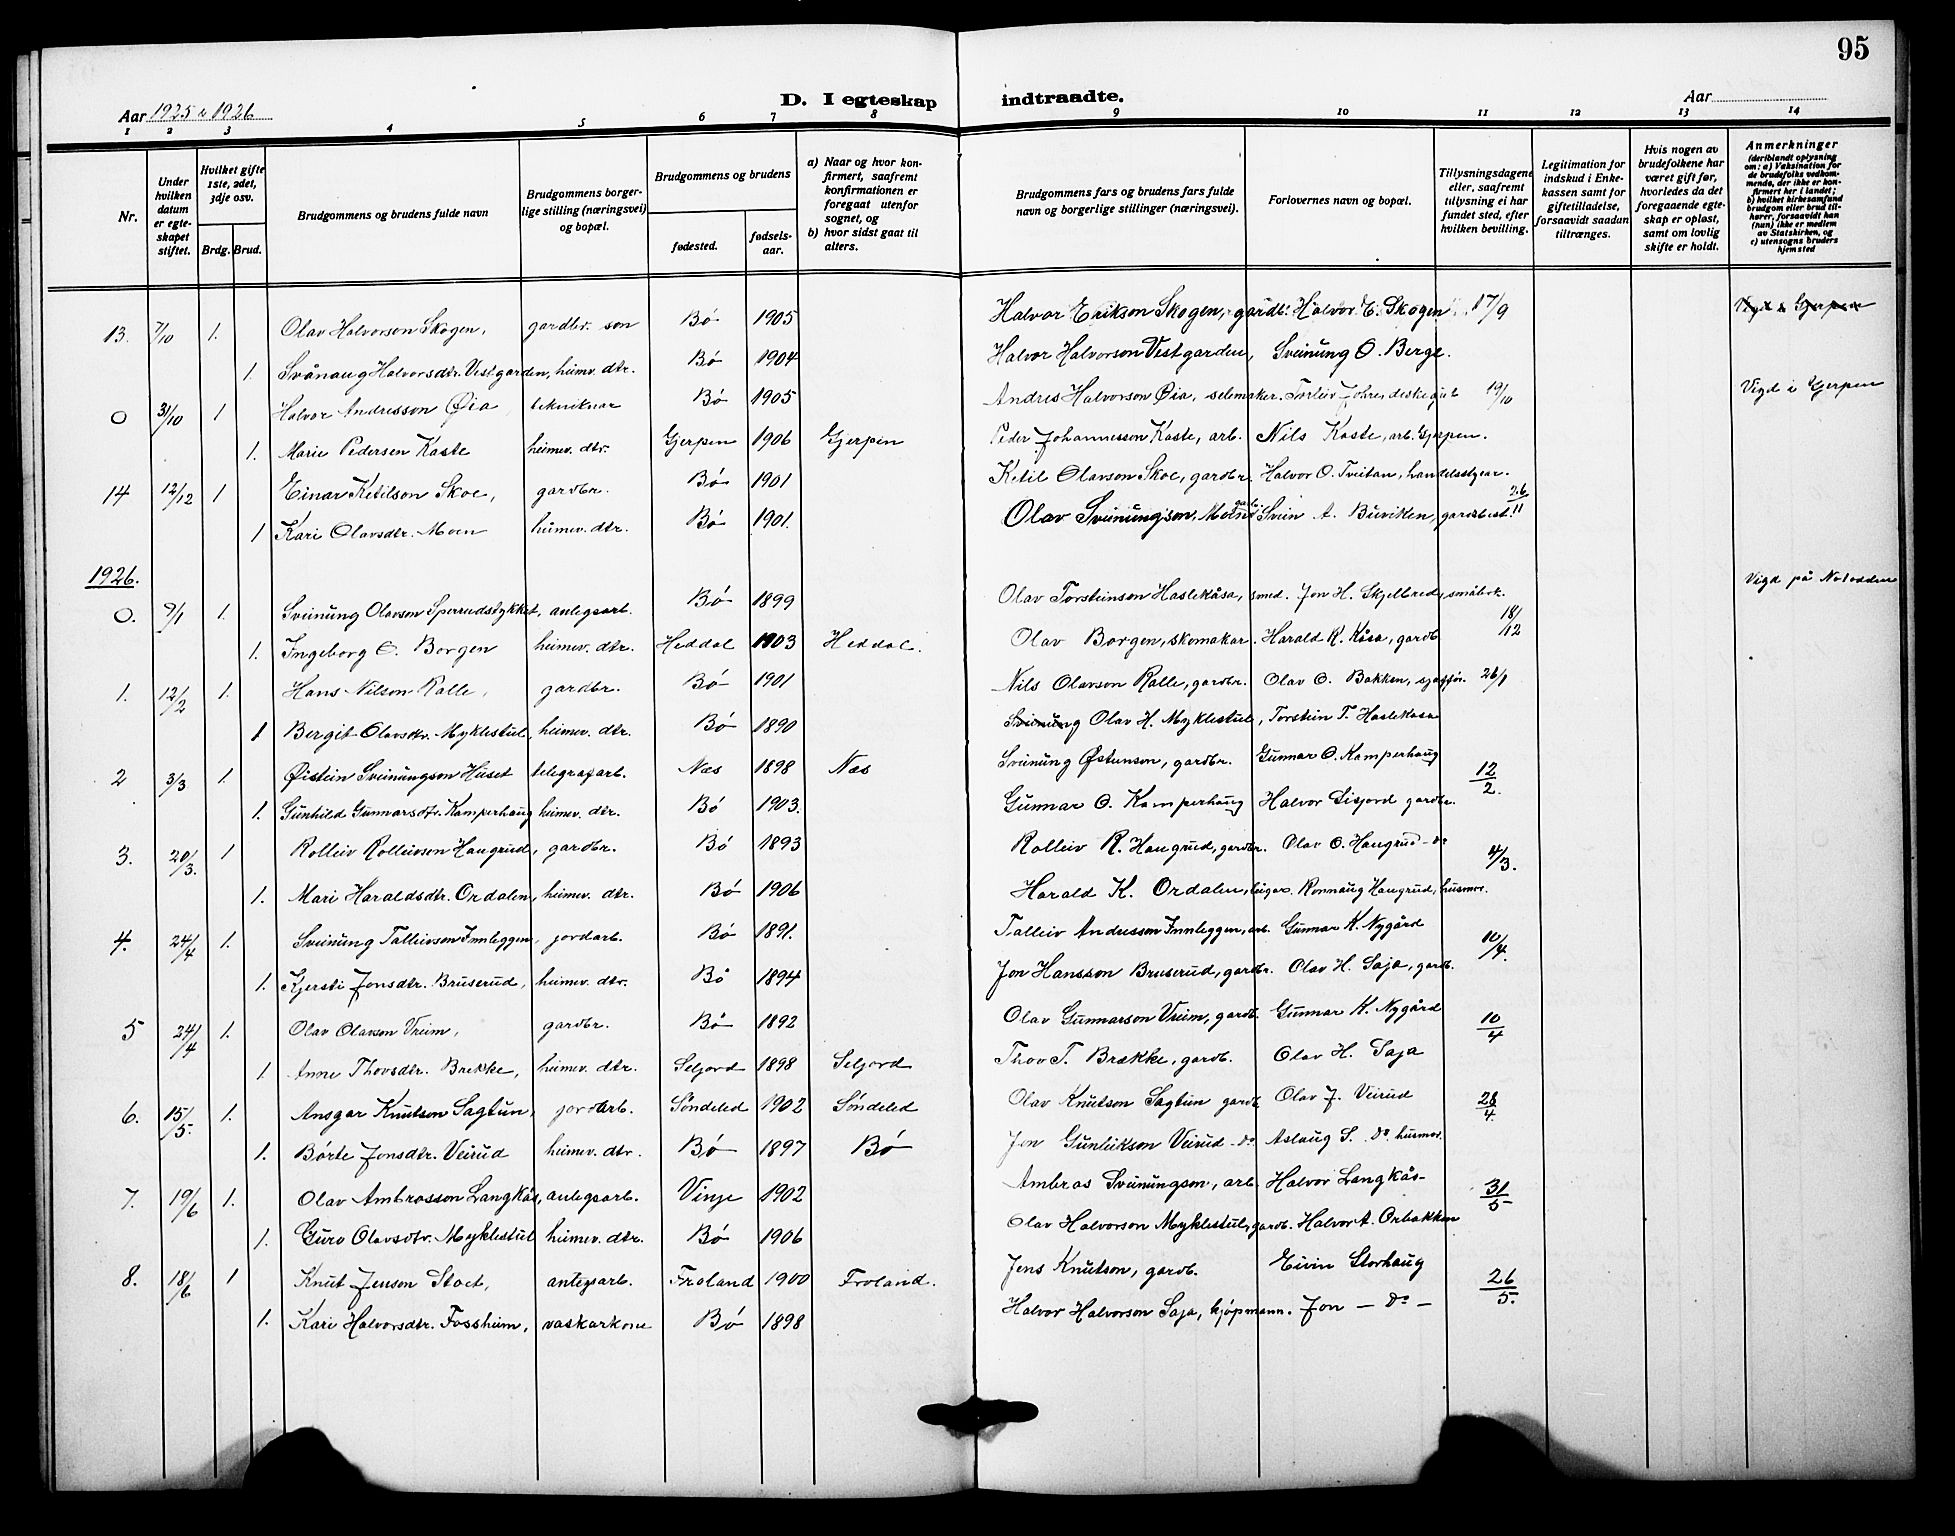 95
Aar 1925 & 1926
D. I egteskap
indtraadte.
Aar
1 2 3 4 5 6 7 8 9 10 11 12 13 14
Nr.
Under hvilken datum er egte-skapet stiftet.
Hvilket gifte 1ste, 2det, 3dje osv.
Brdg. Brud.
Brudgommens og brudens fulde navn
Brudgommens borger-lige stilling (næringsvei) og bopæl.
Brudgommens og brudens
fødested.
fødsels-aar.
a) Naar og hvor kon-firmert, saafremt konfirmationen er foregaat utenfor sognet, og
b) hvor sidst gaat til alters.
Brudgommens fars og brudens fars fulde navn og borgerlige stillinger (næringsvei).
Forlovernes navn og bopæl.
Tillysningsdagene eller, saafremt tillysning ei har fundet sted, efter hvilken bevilling.
Legitimation for indskud i Enke-kassen samt for giftetilladelse, forsaavidt saadan tiltrænges.
Hvis nogen av brudefolkene har været gift før, hvorledes da det foregaaende egte-skap er opløst, samt om lovlig skifte er holdt.
Anmerkninger
(deriblandt oplysning om: a) Vaksination for de brudefolks vedkom-mende, der ikke er kon-firmert her i landet; b) hvilket kirkesamfund brudgom eller brud til-hører, forsaavidt han (hun) ikke er medlem av Statskirken, og c) utensogns bruders hjemsted
13. 7/10 1. Olav Halvorson Skogen, gardbr. son Bö 1905 Halvor Erikson Skogen, gardb. Halvor E. Skogen 17/9 Vigd i Gjerpen
1. Svånaug Halvorsdtr. Vestgarden, heimev. dtr. Bö 1904 Halvor Halvorson Vestgarden, Sveinung O. Berge.
O 31/10 1 Halvor Andresson Øia, teknikar Bö 1905 Andres Halvorson Øia, selemaker. Torleiv 19/10 Vigd i Gjerpen
1. Marie Pedersen Kaste heimev. dtr. Gjerpen 1906 Gjerpen Peder Johannesson Kaste, arb. Nils Kaste, arb. Gjerpen.
14 12/12 1 Einar Ketilson Skoe, gardbr. Bö 1901 Ketil Olavson Skoe, gardbr. Halvor O. Tveitan, handelsstyrar.
1 Kari Olavsdtr. Moen heimev. dtr. Bö 1901. Olav Sveinungson Moen, Svein A. Buviken, gardbest. 26/11
1926.
O. 9/1 1. Sveinung Olavson Sperrudstykket, anlegsarb. Bö 1899 Olav Torsteinson Haslekåsa, smed. Jon H. Skjelbred, småbrk. Vigd på Notodden
1. Ingeborg O. Borgen heimev. dtr. Heddal 1903 Heddal. Olav Borgen, skomakar. Harald K. Kåsa, gardb 18/12
1. 12/2 1. Hans Nilson Kalle, gardbr. Bö 1901 Nils Olavson Kalle, gardbr. Olav O. Bakken, sjaffør. 26/1
1 Bergit Olavsdtr. Myklestul, heimev. dtr. Bö 1890 Sveinung Olav H. Myklestul, Torstein T. Haslekasa
2 3/3 1. Øistein Sveinungson Huset telegrafarb. Næs 1898 Næs Sveinung Østenson, gardbr. Gunnar O. Kamperhaug 12/2.
1. Gunhild Gunnarsdtr. Kamperhaug heimev. dtr. Bö 1903. Gunnar O. Kamperhaug Halvor Lisjord gardbr.
3. 20/3. 1 Rolleiv Rolleivson Haugrud, gardbr. Bö 1893 Rolleiv R. Haugrud, gardbr. Olav O. Haugrud - do 4/3.
1. Mari Haraldsdtr. Ordalen, heimev. dtr. Bö 1906 Harald K. Ordalen, Ronnaug Haugrud, husmor.
4. 24/4 1. Sveinung Talleivson Innleggen, jordarb. Bö 1891. Talleiv Andresson Innleggen, arb. Gunnar K. Nygård 10/4.
1. Kjersti Jonsdtr. Bruserud, heimev. dtr. Bö 1894 Jon Hansson Bruserud, gardbr. Olav H. Saja, gardb.
5 24/4 1. Olav Olavson Vreim, gardbr. Bö 1892 Olav Gunnarson Vreim, gardb. Gunnar K. Nygård 10/4
1. Anne Thovsdtr. Brekke, heimev. dtr. Seljord 1898 Seljord Thov T. Brække, gardb. Olav H. Saja
6. 15/5. 1. Ansgar Knutson Sagtun, jordarb. Söndeled 1902 Söndeled Olav Knutson Sagtun gardb. Olav J. Veirud 28/4.
1. Börte Jonsdtr. Veirud heimev. dtr. Bö 1897 Bö Jon Gunleikson Veirud - do. Aslaug S. do husmor.
7. 19/6 1. Olav Ambrosson Langkås, anlegsarb. Vinje 1902 Ambros Sveinungson, arb. Halvor Langkås- 31/5
1. Guro Olavsdtr. Myklestul heimev. dtr. Bö 1906 Olav Halvorson Myklestul, gardb. Halvor A. Orbakken
8. 18/6 1 Knut Jenson Stoet, anlegsarb. Froland 1900 Froland. Jens Knutson, gardb. Eivin Storhaug 26/5.
1. Kari Halvorsdtr. Fossheim, vaskarkone Bö 1898 Halvor Halvorson Saja, kjöpmann. Jon - do -